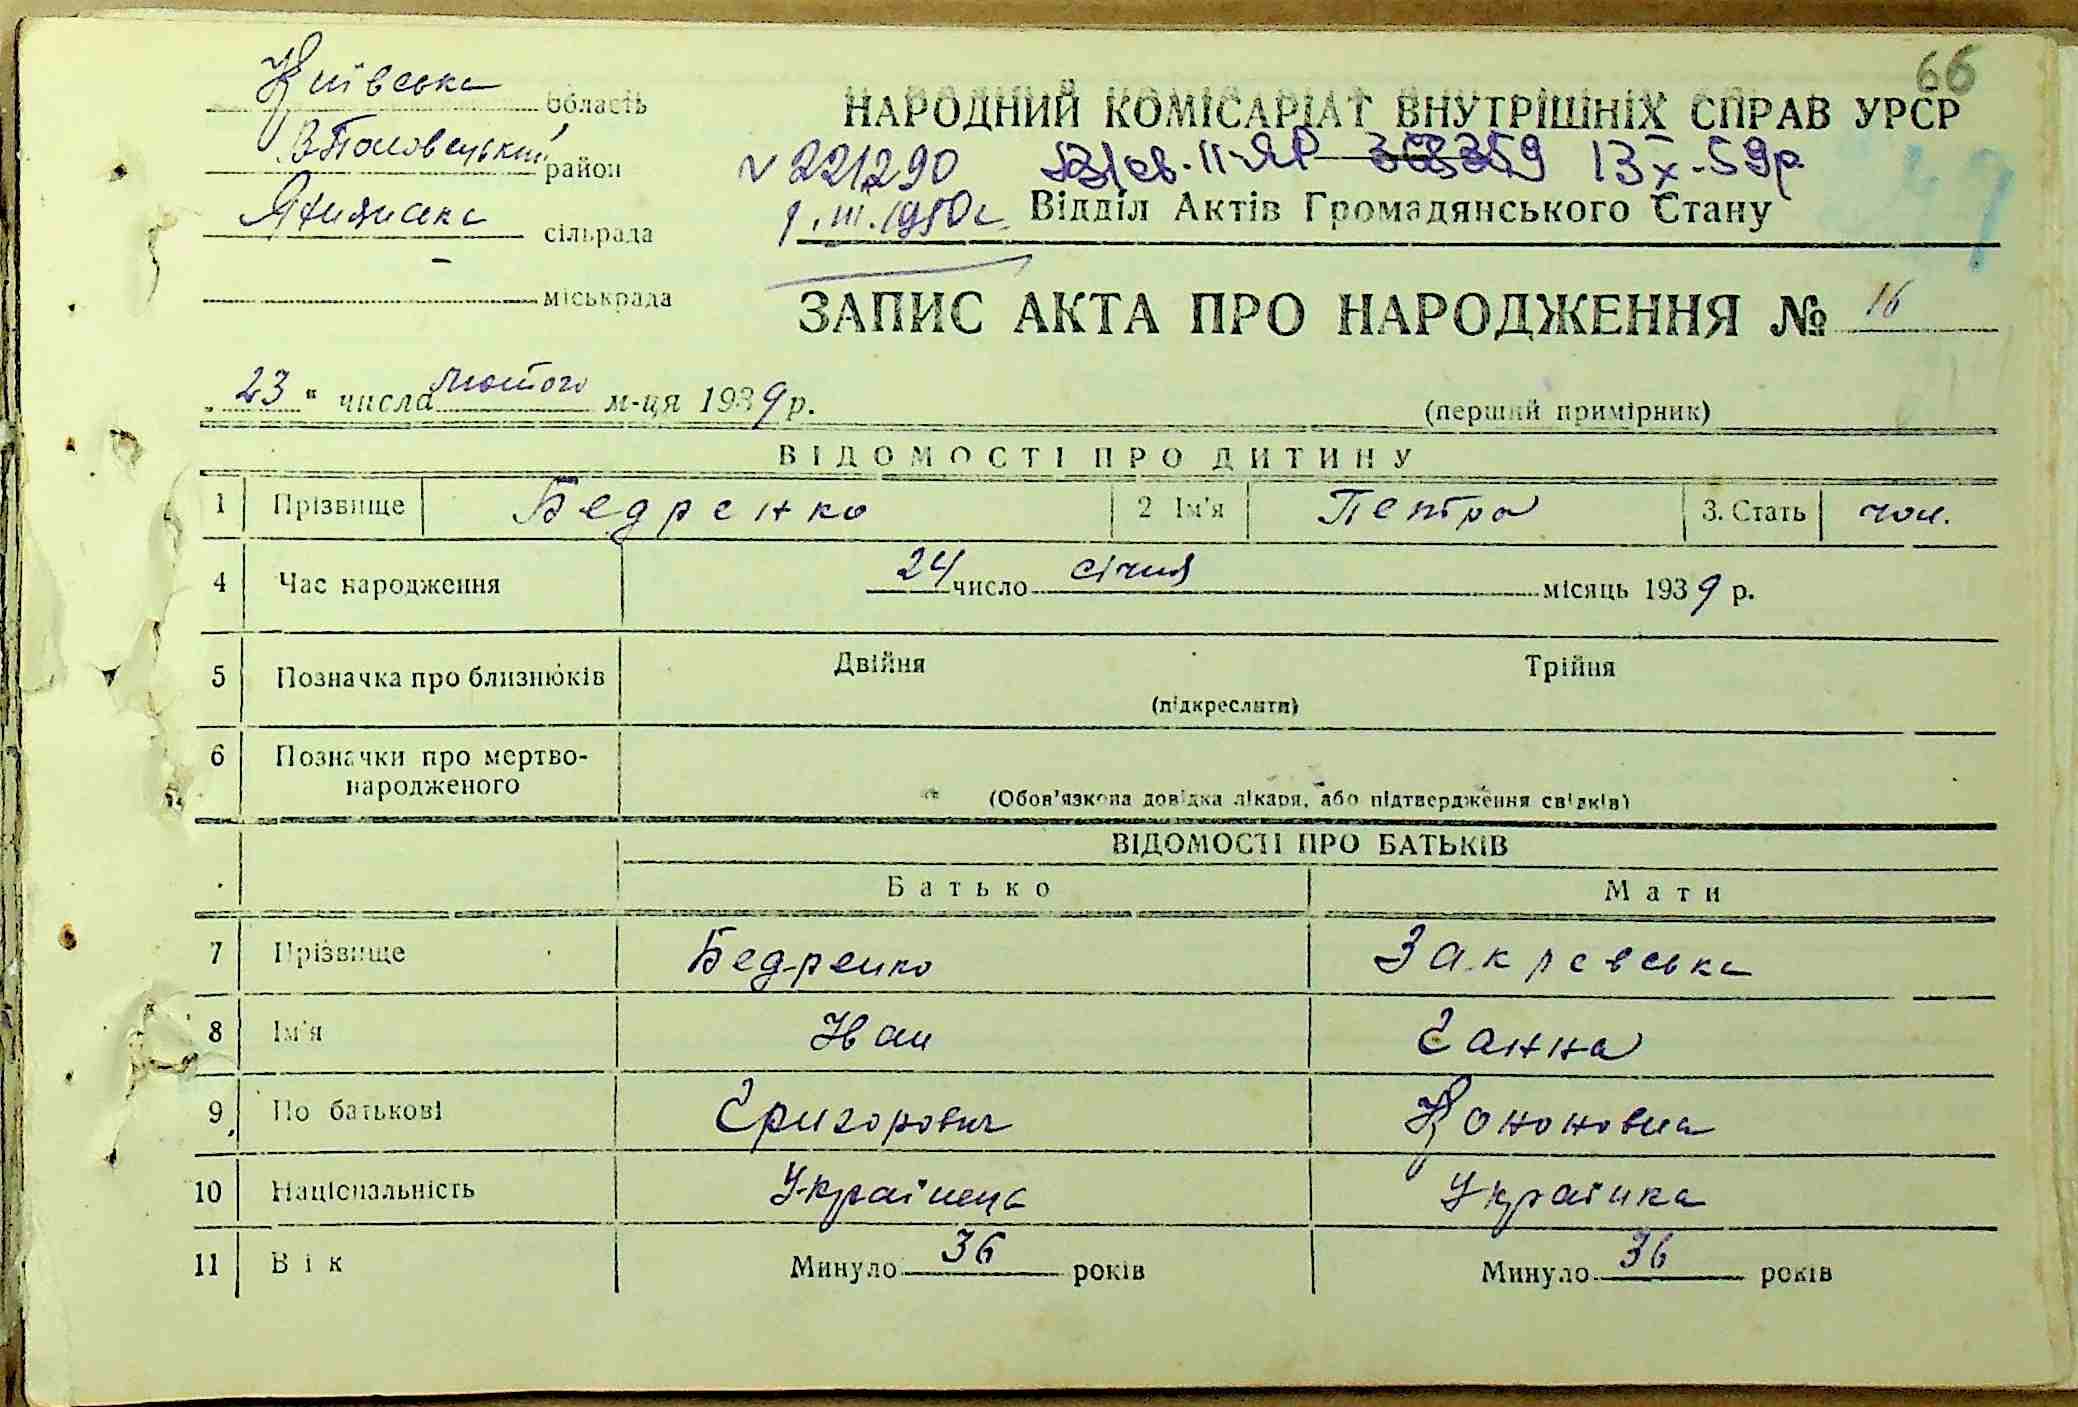 66
Київська область
В-Половецький район
сільрада
міськрада
НАРОДНИЙ КОМІСАРІАТ ВНУТРІШНІХ СПРАВ УРСР
№ 221290 II-ЯР 13 X-59р.
1.III.1950г. Відділ Актів Громадянського Стану
ЗАПИС АКТА ПРО НАРОДЖЕННЯ № 16
„23" числа лютого м-ця 1939 р.
(перший примірник)
ВІДОМОСТІ ПРО ДИТИНУ
1 Прізвище Бедренко 2 Ім'я Петро 3. Стать чол.
4 Час народження 24 число січня місяць 1939 р.
5 Позначка про близнюків Двійня Трійня
(підкреслити)
6 Позначки про мертво-
народженого
(Обов'язкова довідка лікаря, або підтвердження свідків)
ВІДОМОСТІ ПРО БАТЬКІВ
Батько Мати
7 Прізвище Бедренко Закревська
8 Ім'я Іван Ганна
9 По батькові Григорович Кононовна
10 Національність Українець Українка
11 Вік Минуло 36 років Минуло 36 років